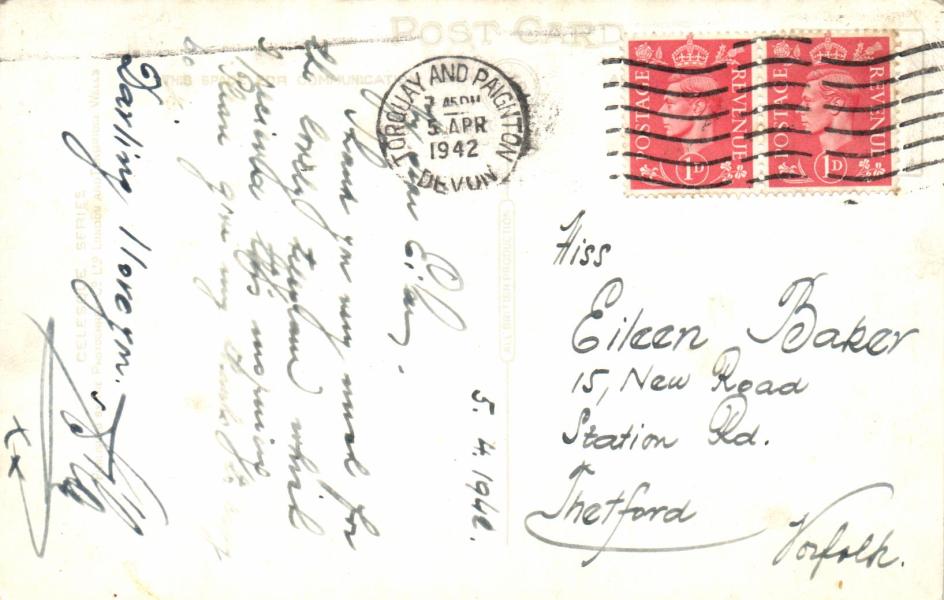 POST CARD
THIS SPACE FOR COMMUNICATION
TORQUAY AND PAIGNTON
7.45 PM
5 APR
1942
DEVON
POSTAGE REVENUE
1D
POSTAGE REVENUE
1D
Miss
Eileen Baker
15, New Road
Station Rd.
Thetford
Norfolk.
5. 4. 1942.
My dear Eileen,
Thank you very much for
the lovely telegram which
I received this morning
Please give my
to
Darling I love you.
x x
CELESQUE SERIES
ALL BRITISH PRODUCTION